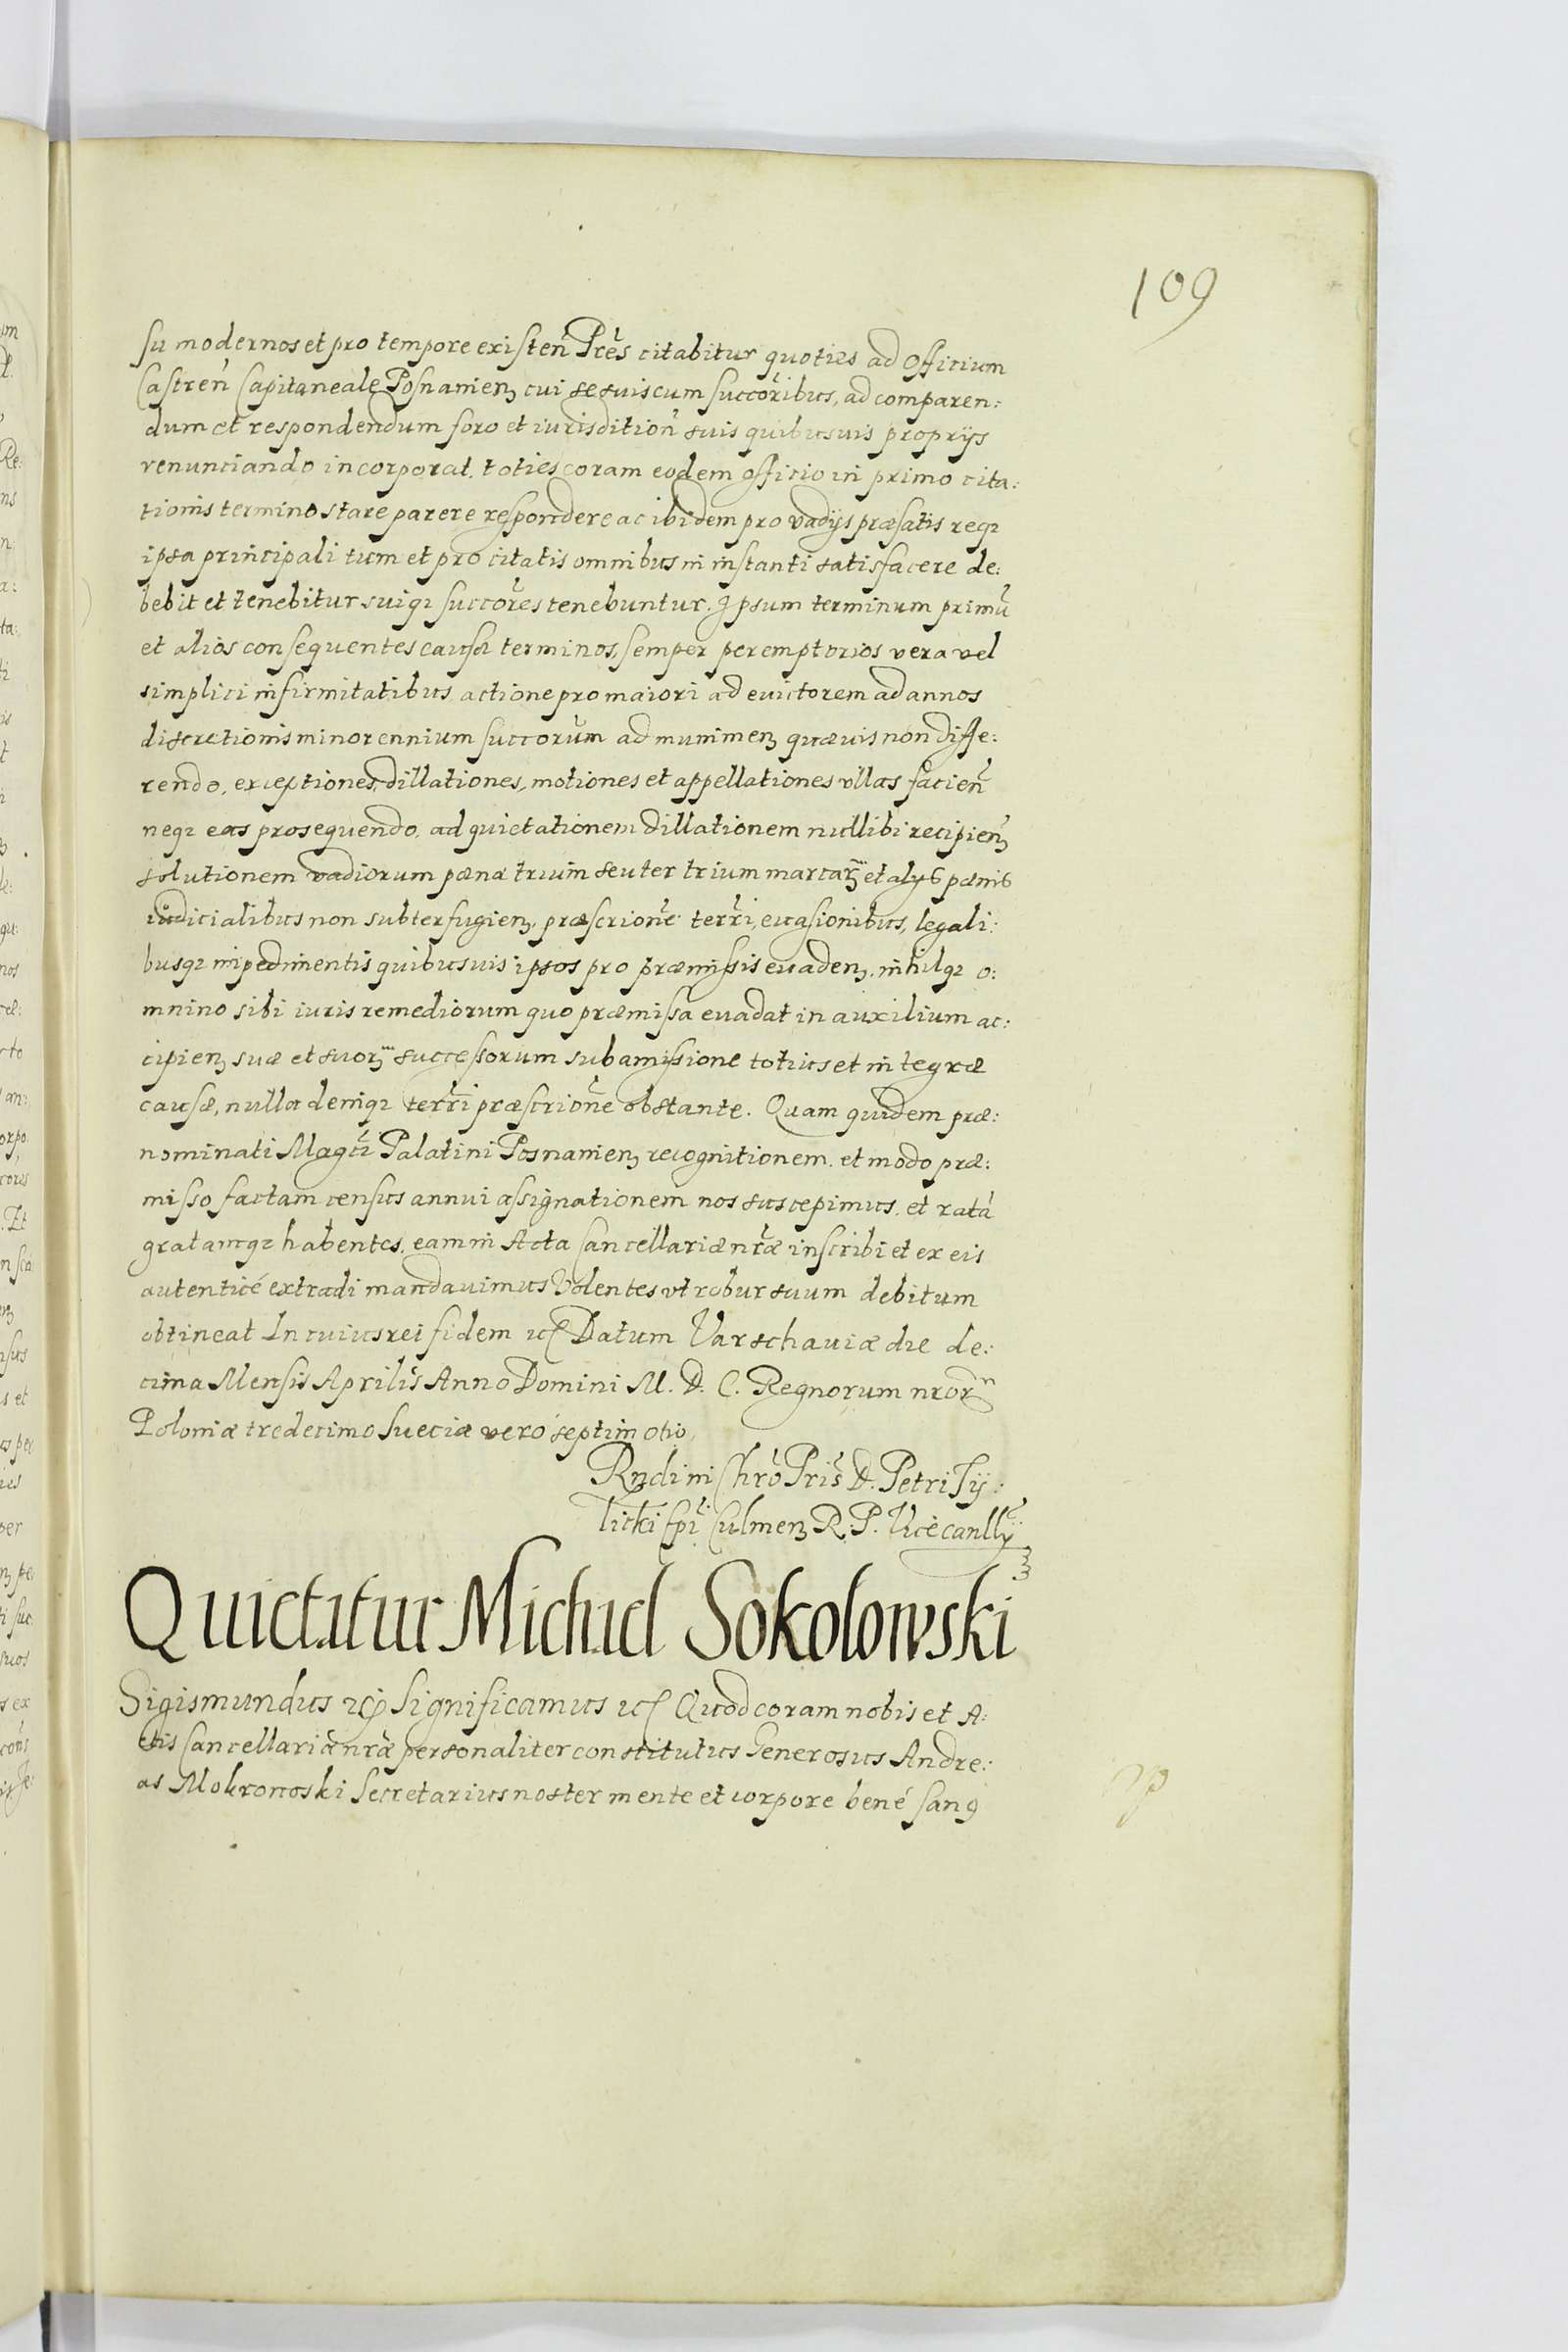 109
su modernos et pro tempore existen̄ Prēs citabitur quoties ad Officium
Castren̄ Capitaneale Posnanienȝ cui se suis cum succorībus, ad comparen:
dum et respondendum foro et iurisdition̄ suis quibusuis proprijs
renunciando incorporat. toties coram eodem officio in primo cita:
tionis termino stare parere respondere ac ibidem pro vadijs præfatis reqꝫ
ipsa principali tum et pro citatis omnibus in instanti satisfacere de:
bebit et tenebitur suiqꝫ succorēs tenebuntur. Ipsum terminum primū
et alios consequentes causæ terminos, semper peremptorios vera vel
simplici infirmitatibus actione pro maiori ad euictorem ad annos
discretionis minorennium succorūm ad munimenȝ quæuis non diffe:
rendo, exceptiones, dillationes, motiones et appellationes vllas facien̄
neqꝫ eas prosequendo. ad quietationem dillationem nullibi recipienȝ
solutionem vadiorum pæna trium seu ter trium marcarȝ et alys pænis
iudicialibus non subterfugienȝ. præscrione terri, euasionibus, legali:
busqꝫ impedimentis quibusuis ipsos pro præmissis euadenȝ. nihilqꝫ o:
mnino sibi iuris remediorum quo præmissa euadat in auxilium ac:
cipienȝ suæ et suorȝ successorum sub amissione totius et integræ
causæ, nulla deniqꝫ terri præscrione obstante. Quam quidem præ:
nominati Magci Palatini Posnanienȝ recognitionem. et modo præ:
misso factam census annui assignationem nos suscepimus. et ratā
gratamqꝫ habentes. eam in Acta Cancellariæ nrǣ inscribi et ex eis
autenticé extradi mandauimus Volentes vt robur suum debitum
obtineat In cuius rei fidem ꝛc Datum Varschauiæ die de:
cima Mensis Aprilis Anno Domini M. D. C. Regnorum nrorȝ
Poloniæ tredecimo Sueciæ vero septimo
Rndi in Chrō Pris D. Petri Ty:
licki Epi Culmenȝ R. P. Vicecanllȳ
Quietatur Michael Sokolowski
Sigismundus ꝛc Significamus ꝛc Quod coram nobis et A:
ctis Cancellariæ nrǣ personaliter constitutus Generosus Andre:
as Mokronoski Secretarius noster mente et corpore bené sanꝰ